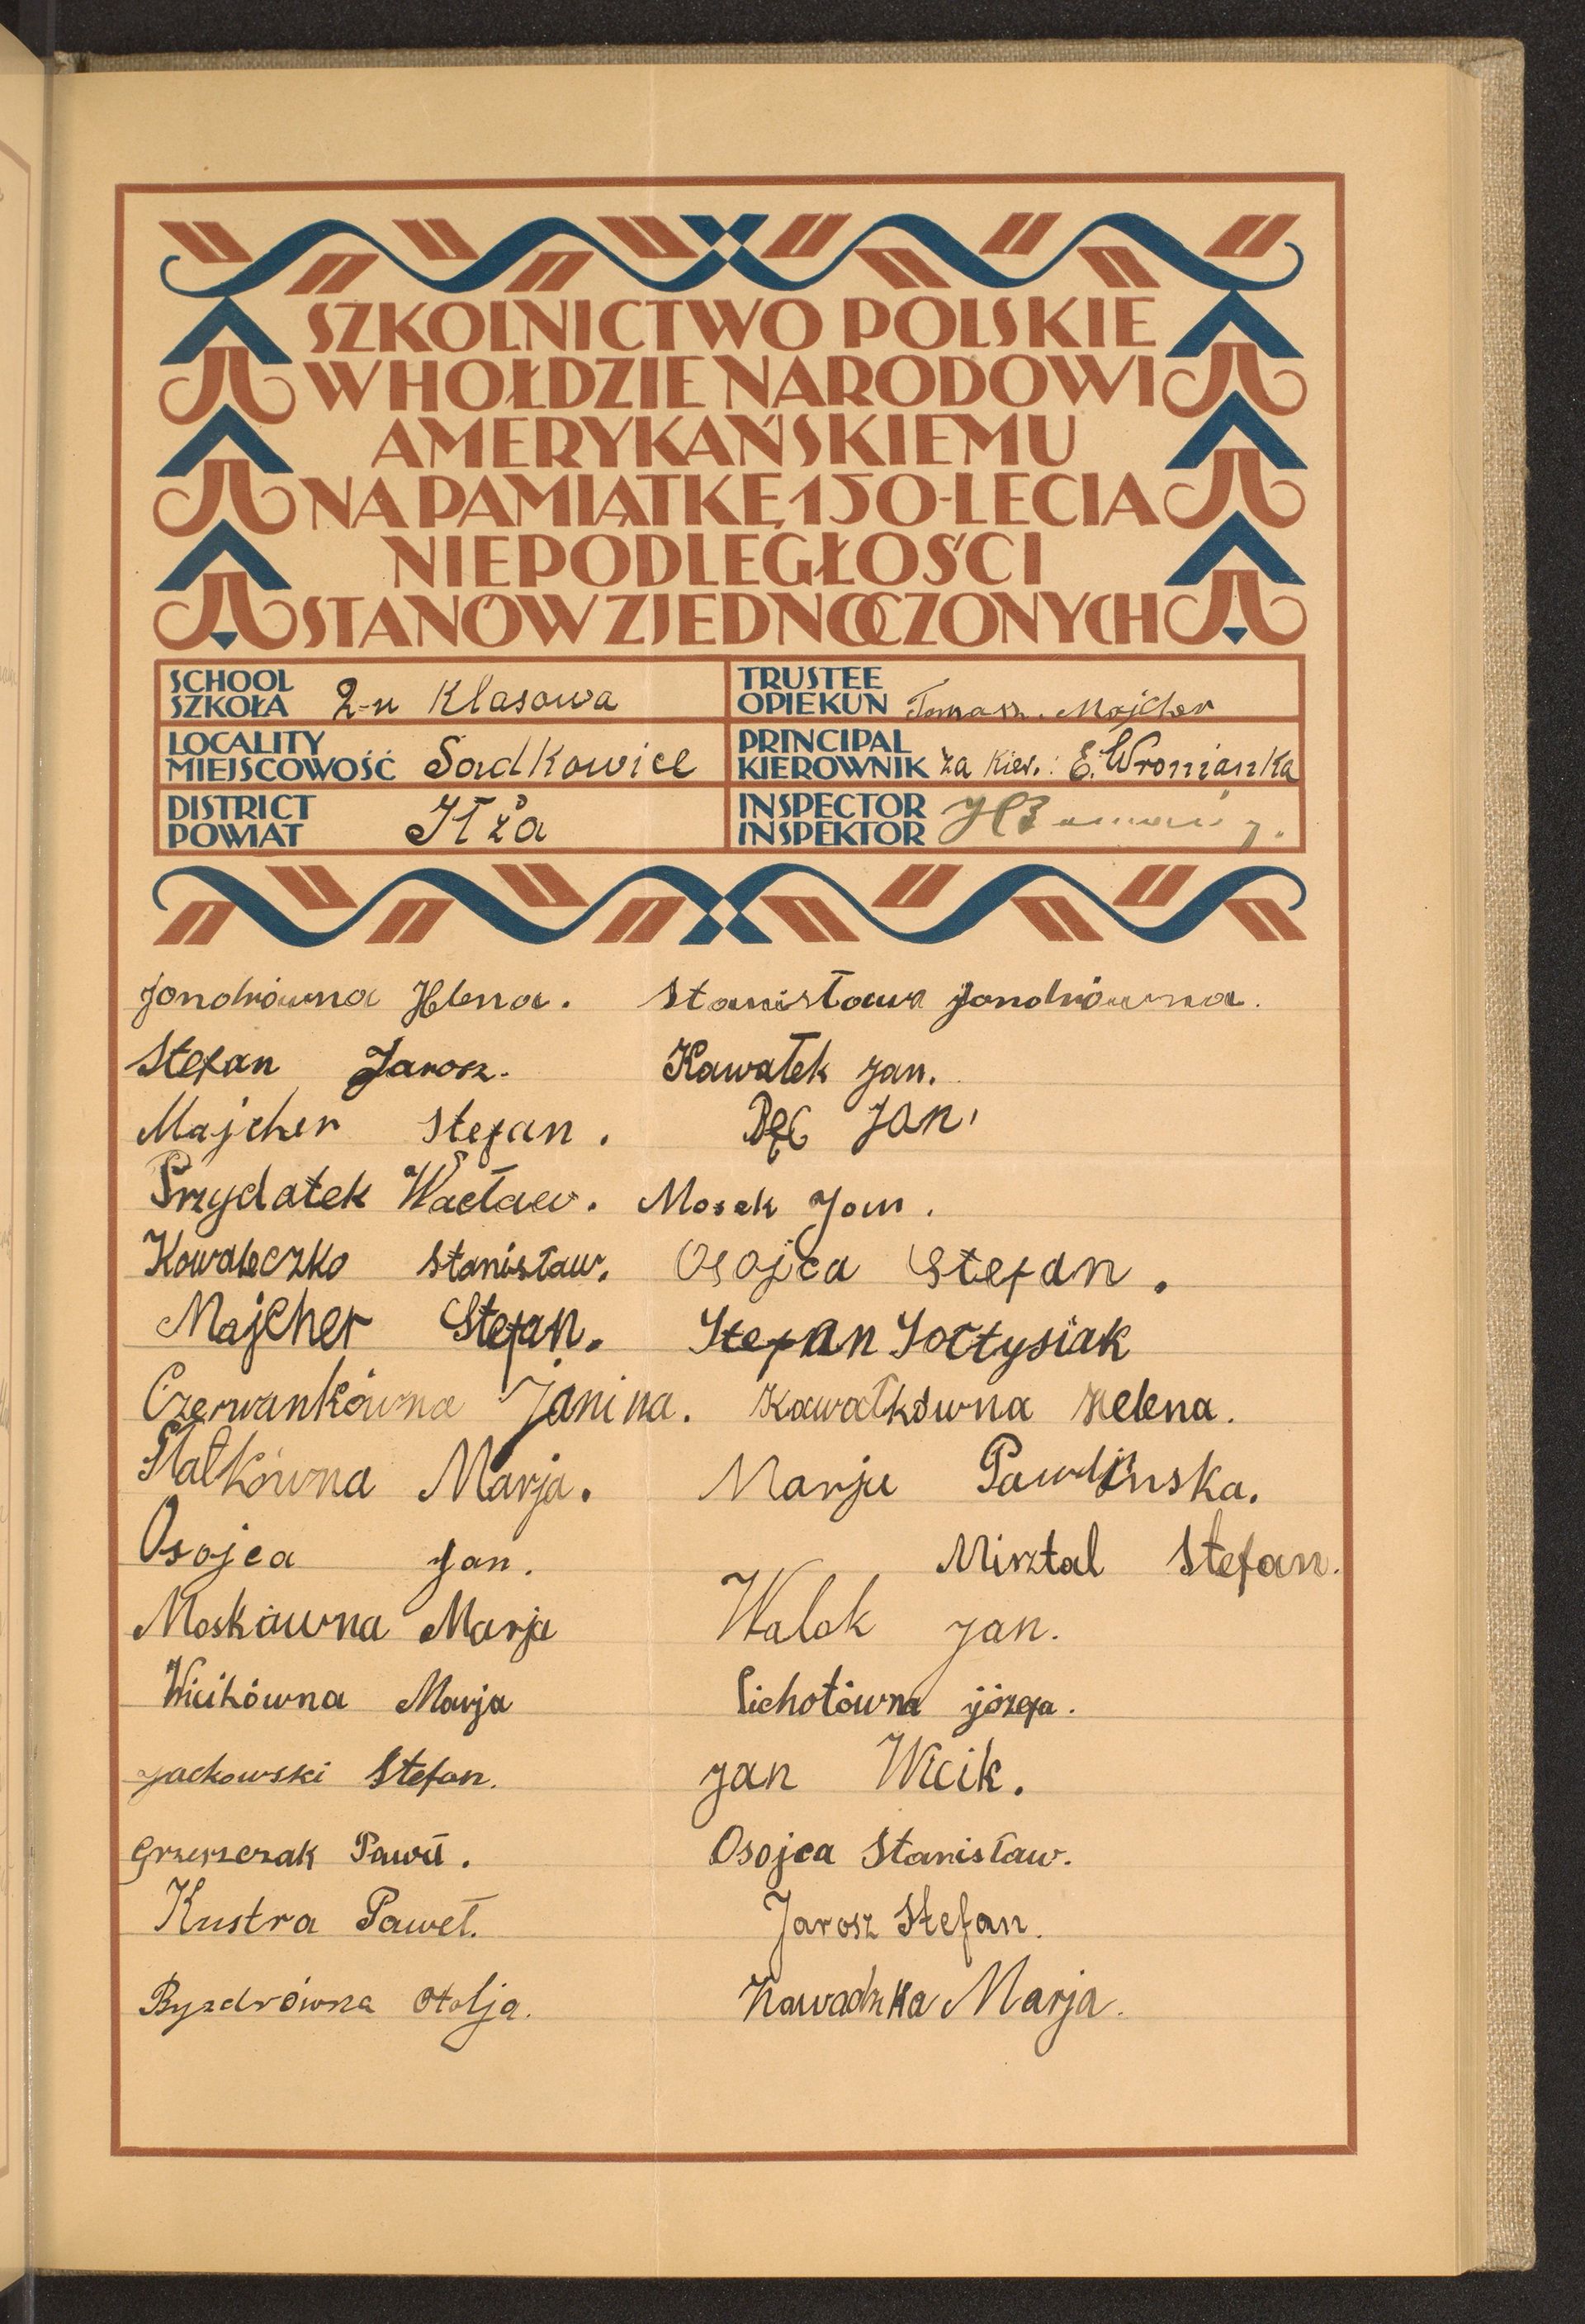 SZKOLNICTWO POLSKIE
W HOŁDZIE NARODOWI
AMERYKAŃSKIEMU
NA PAMIĄTKĘ 150-LECIA
NIEPODLEGŁOŚCI
STANÓW ZJEDNOCZONYCH
SCHOOL
SZKOŁA 2-u Klasowa
TRUSTEE
OPIEKUN Tomasz. Majcher
LOCALITY
MIEJSCOWOŚĆ Sadkowice
PRINCIPAL
KIEROWNIK za Kier.: E. Wronianka
DISTRICT
POWIAT Iłża
INSPECTOR
INSPEKTOR
Jondrówna Helena. Stanisława Jondrówna.
Stefan Jarosz. Kawałek Jan.
Majcher Stefan. Bęc Jan.
Przydatek Wacław. Mosek Jan.
Kowaleczko Stanisław. Osojca Stefan.
Majcher Stefan. Stefan Sołtysiak
Czerwankówna Janina. Kawałkówna Helena.
Małkówna Marja. Marja Pawlińska.
Osojca Jan. Misztal Stefan.
Moskówna Marja Walek Jan.
Wicikówna Marja Cichotówna józefa.
Jackowski Stefan. Jan Wicik.
Grzesczak Paweł. Osojca Stanisław.
Kustra Paweł. Jarosz Stefan.
Byzdrówna Otolja. Nawadzka Marja.